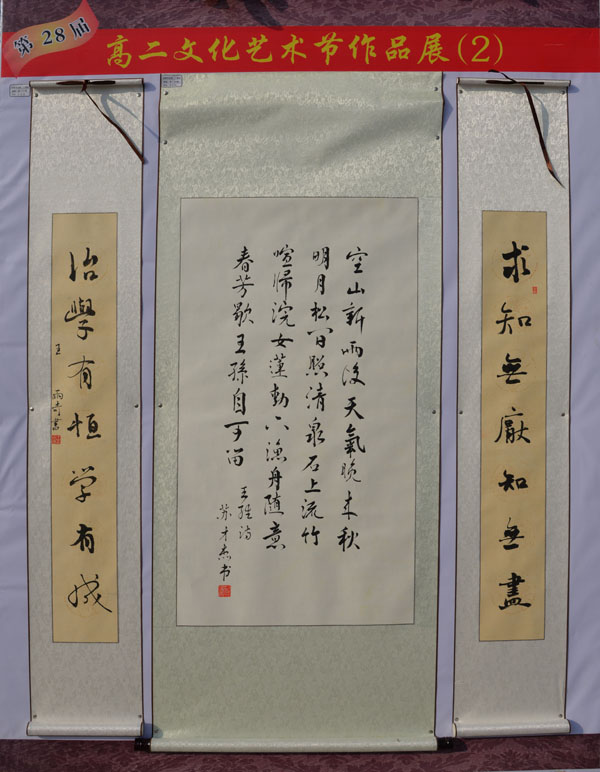 第28届
高二文化艺术节作品展(2)
求知無厭知無盡
空山新雨後天氣晚来秋
明月松间照清泉石上流竹
喧帰浣女蓮動下漁舟随意
春芳歇王孫自可留
王维诗
苏才杰书
治學有恒学有成